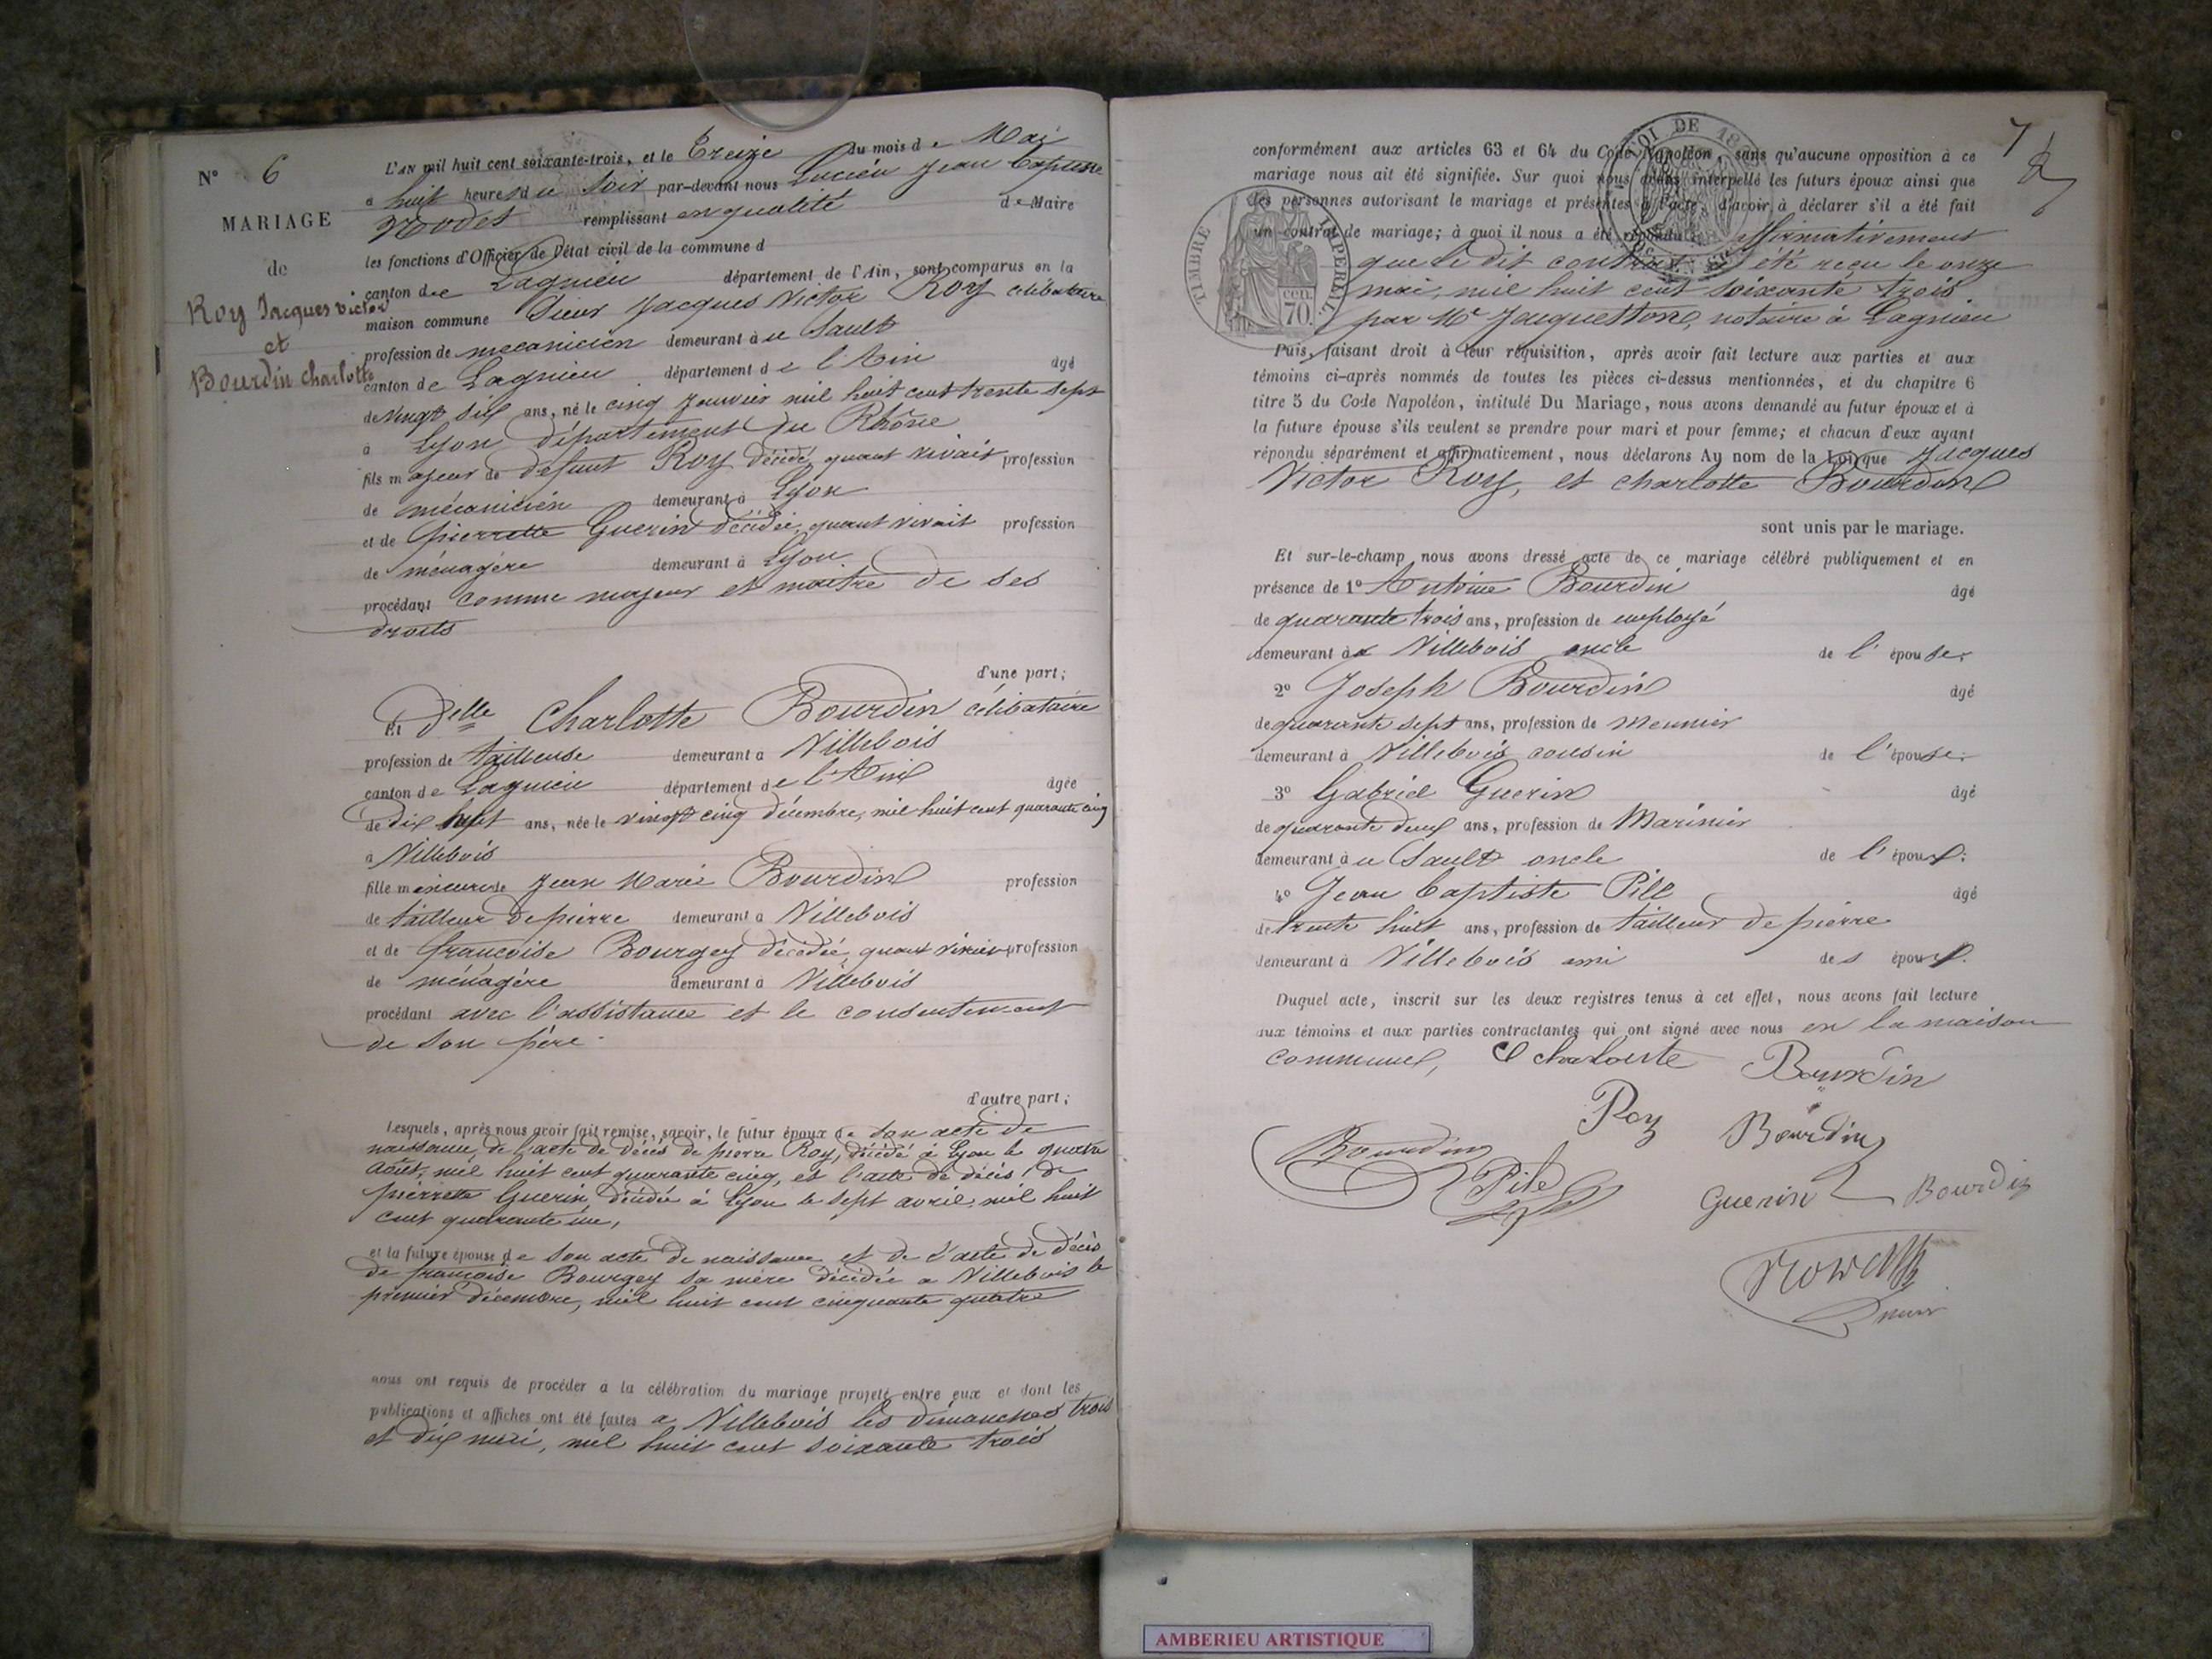 N° 6
MARIAGE
de
Roy Jacques victor
et
Bourdin charlotte
L'AN mil huit cent soixante-trois, et le Treize du mois de Mai
à huit heures du Soir par-devant nous Lucien Jean
Rodet remplissant en qualité de Maire
les fonctions d'Officier de l'état civil de la commune d
canton de Lagnieu département de l'Ain, sont comparus en la
maison commune Sieur Jacques Victor Roy célibataire
profession de mecanicien demeurant à u Sault
canton de Lagnieu département de l'Ain âgé
de vingt six ans, né le cinq Janvier mil huit cent trente sept
à Lyon département du Rhône
fils majeur de defunt Roy décédé, quant vivait profession
de mécanicien demeurant à Lyon
et de pierrette Guerin décédée, quant vivait profession
de ménagère demeurant à Lyon
procédant comme majeur et maitre de ses
droits
d'une part;
Et Delle Charlotte Bourdin célibataire
profession de tailleuse demeurant à Villebois
canton de Lagnieu département de l'Ain âgée
de dix sept ans, née le vingt cinq décembre, mil huit cent quarante cinq
à Villebois
fille mineure de Jean Marie Bourdin profession
de tailleur de pierre demeurant à Villebois
et de francoise Bourgey décédée, quant vivait profession
de ménagère demeurant à Villebois
procédant avec l'assistance et le consentement
de son père.
d'autre part;
Lesquels, après nous avoir fait remise, savoir, le futur époux de son acte de
naissance, de l'acte de décès de pierre Roy, décédé à Lyon le quatre
août, mil huit cent quarante cinq, et l'acte de décès de
pierrette Guerin, décédée à Lyon le sept avril, mil huit
cent quarante un,
et la future épouse de son acte de naissance et de l'acte de décès
de francoise Bourgey sa mère décédée a Villebois le
premier décembre, mil huit cent cinquante quatre
nous ont requis de procéder à la célébration du mariage projeté entre eux et dont les
publications et affiches ont été faites a Villebois les dimanches trois
et dix mai, mil huit cent soixante trois
7
conformément aux articles 63 et 64 du Code Napoléon, sans qu'aucune opposition à ce
mariage nous ait été signifiée. Sur quoi nous avons interpellé les futurs époux ainsi que
les personnes autorisant le mariage et présentes à l'acte, d'avoir à déclarer s'il a été fait
un contrat de mariage; à quoi il nous a été répondu affirmativement
que le dit contrat a été reçu le onze
mai, mil huit cent soixante trois
par Me Jacquetton, notaire à Lagnieu
TIMBRE IMPERIAL
70 cen.
Puis, faisant droit à leur réquisition, après avoir fait lecture aux parties et aux
témoins ci-après nommés de toutes les pièces ci-dessus mentionnées, et du chapitre 6
titre 5 du Code Napoléon, intitulé Du Mariage, nous avons demandé au futur époux et à
la future épouse s'ils veulent se prendre pour mari et pour femme; et chacun d'eux ayant
répondu séparément et affirmativement, nous déclarons Au nom de la Loi que Jacques
Victor Roy, et charlotte Bourdin
sont unis par le mariage.
Et sur-le-champ nous avons dressé acte de ce mariage célébré publiquement et en
présence de 1° Antoine Bourdin âgé
de quarante trois ans, profession de employé
demeurant à Villebois oncle de l'épouse.
2° Joseph Bourdin âgé
de quarante sept ans, profession de Meunier
demeurant à Villebois cousin de l'épouse.
3° Gabriel Guerin âgé
de quarante deux ans, profession de Marinier
demeurant à u Sault oncle de l'époux;
4° Jean Baptiste Pile âgé
de trente huit ans, profession de tailleur de pierre
demeurant à Villebois ami des époux.
Duquel acte, inscrit sur les deux registres tenus à cet effet, nous avons fait lecture
aux témoins et aux parties contractantes qui ont signé avec nous en la maison
commune,
Bourdin
Roy Bourdin
Bourdin Pile Guerin Bourdin
AMBERIEU ARTISTIQUE